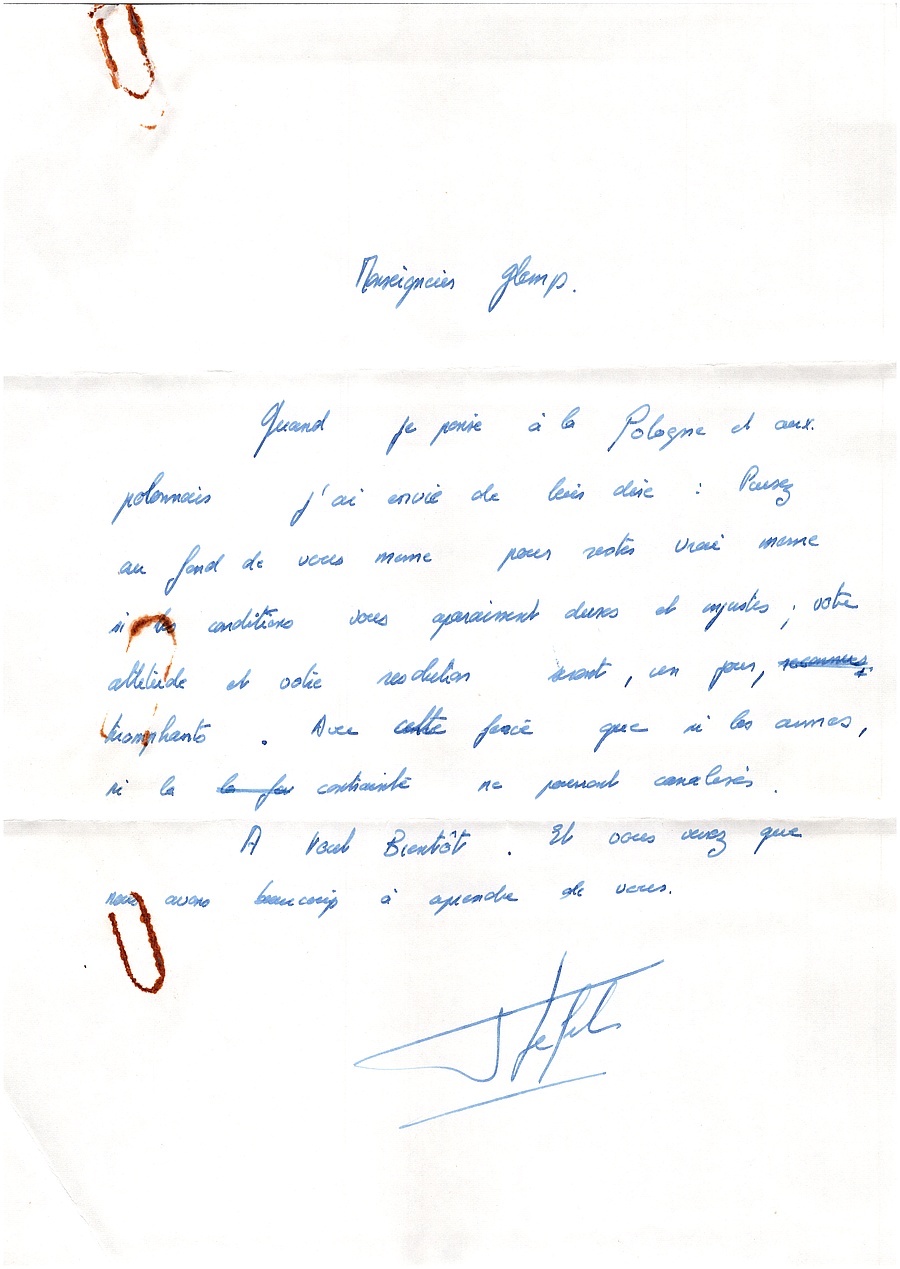 Monseigneur Glemp.
Quand je pense à la Pologne et aux
polonnais j'ai envie de leur dire : Puisez
au fond de vous meme pour rester vrai meme
si les conditions vous aparaissent dures et injustes ; votre
attitude et votre resolution seront, un jour,
triomphants . Avec cette force que ni les armes,
ni la contrainte ne pourront canaliser.
A tout Bientôt . Et vous verez que
nous avons beaucoup à aprendre de vous.